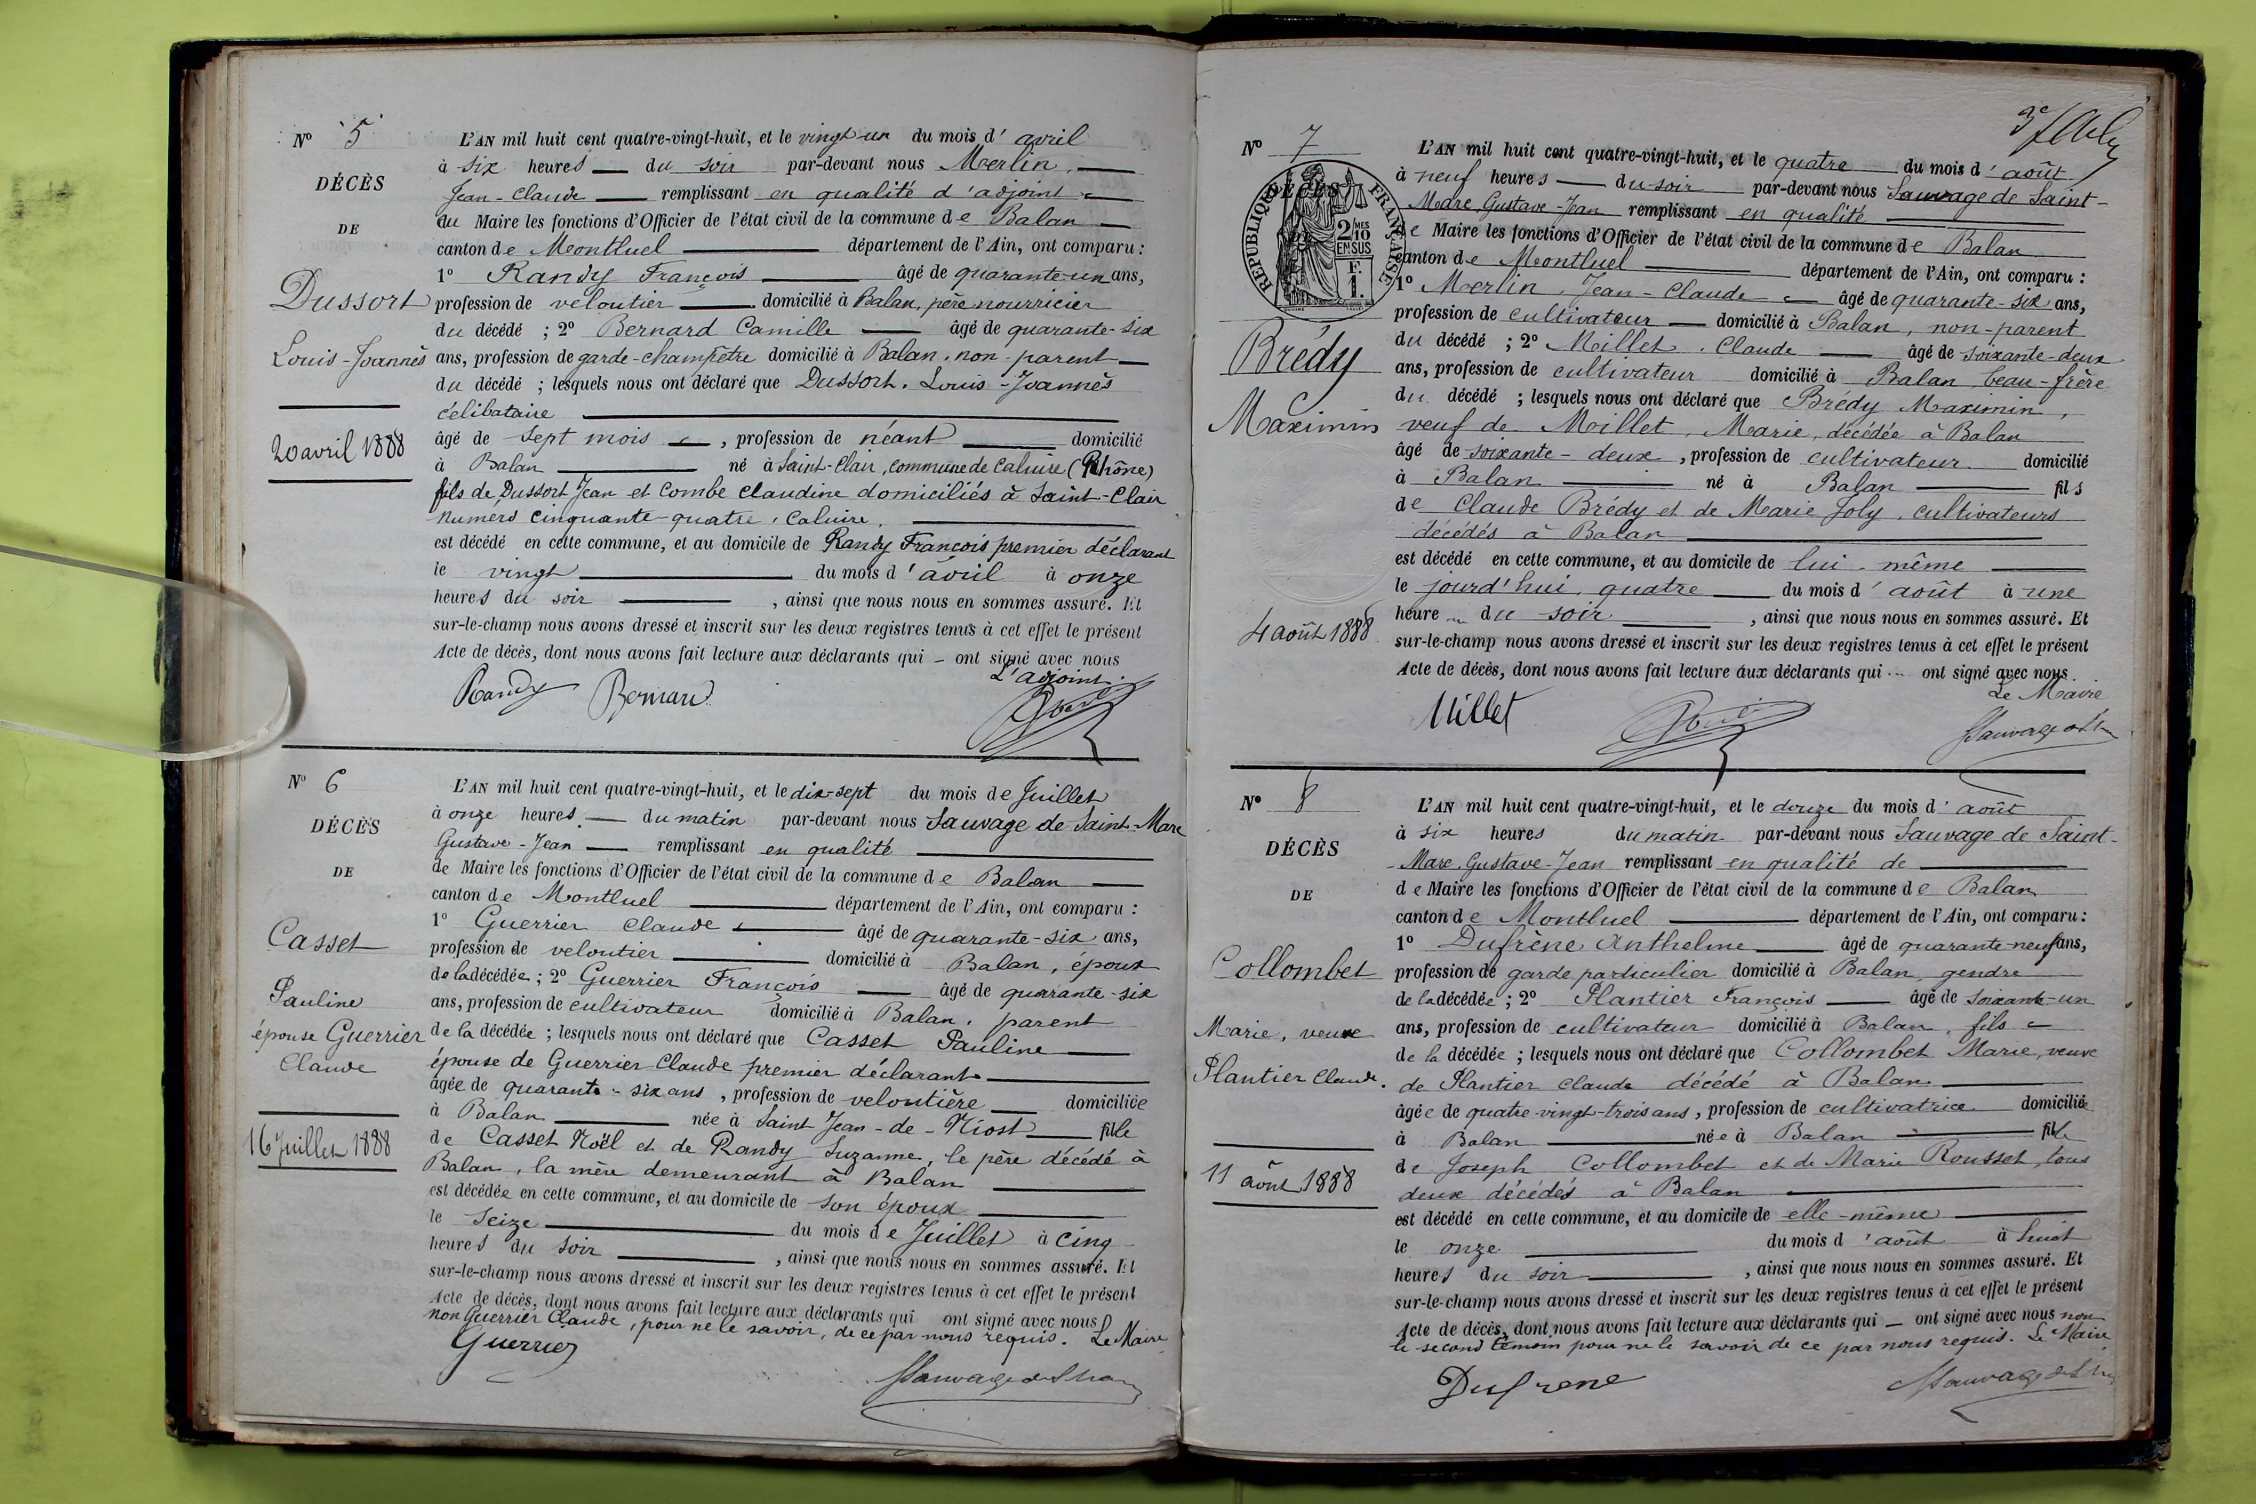 Nº 5
DÉCÈS
DE
Dussort
Louis-Joannès
20 avril 1888
L'AN mil huit cent quatre-vingt-huit, et le vingt-un du mois d'avril
à six heures du soir par-devant nous Merlin,
Jean-Claude remplissant en qualité d'adjoint
du Maire les fonctions d'Officier de l'état civil de la commune de Balan
canton de Montluel département de l'Ain, ont comparu :
1º Randy François âgé de quarante-un ans,
profession de veloutier domicilié à Balan, père nourricier
du décédé ; 2º Bernard Camille âgé de quarante-six
ans, profession de garde-champêtre domicilié à Balan, non-parent
du décédé ; lesquels nous ont déclaré que Dussort, Louis-Joannès
célibataire
âgé de sept mois, profession de néant domicilié
à Balan né à Saint-Clair, commune de Caluire (Rhône)
fils de Dussort Jean et Combe Claudine domiciliés à Saint-Clair
numéro cinquante-quatre, Caluire.
est décédé en cette commune, et au domicile de Randy François premier déclarant
le vingt du mois d'avril à onze
heures du soir, ainsi que nous nous en sommes assuré. Et
sur-le-champ nous avons dressé et inscrit sur les deux registres tenus à cet effet le présent
Acte de décès, dont nous avons fait lecture aux déclarants qui — ont signé avec nous
L'adjoint.
Randy Bernard
Nº 6
DÉCÈS
DE
Casset
Pauline
épouse Guerrier
Claude
16 Juillet 1888
L'AN mil huit cent quatre-vingt-huit, et le dix-sept du mois de Juillet
à onze heures du matin par-devant nous Sauvage de Saint-Marc
Gustave-Jean remplissant en qualité
de Maire les fonctions d'Officier de l'état civil de la commune de Balan
canton de Montluel département de l'Ain, ont comparu :
1º Guerrier Claude âgé de quarante-six ans,
profession de veloutier domicilié à Balan, époux
de la décédée ; 2º Guerrier François âgé de quarante-six
ans, profession de cultivateur domicilié à Balan, parent
de la décédée ; lesquels nous ont déclaré que Casset Pauline
épouse de Guerrier Claude premier déclarant
âgée de quarante-six ans, profession de veloutière domiciliée
à Balan née à Saint Jean-de-Niost fille
de Casset Noël et de Randy Suzanne, le père décédé à
Balan, la mère demeurant à Balan
est décédée en cette commune, et au domicile de son époux
le seize du mois de Juillet à cinq
heures du soir, ainsi que nous nous en sommes assuré. Et
sur-le-champ nous avons dressé et inscrit sur les deux registres tenus à cet effet le présent
Acte de décès, dont nous avons fait lecture aux déclarants qui ont signé avec nous
non Guerrier Claude, pour ne le savoir, de ce par nous requis. Le Maire
Guerrier
Sauvage de St Marc
3e
Nº 7
DÉCÈS
RÉPUBLIQUE FRANÇAISE
2/10 MES
EN SUS
F.
1.
Brédy
Maximin
4 août 1888
L'AN mil huit cent quatre-vingt-huit, et le quatre du mois d'août
à neuf heures du soir par-devant nous Sauvage de Saint-
Marc, Gustave-Jean remplissant en qualité
de Maire les fonctions d'Officier de l'état civil de la commune de Balan
canton de Montluel département de l'Ain, ont comparu :
1º Merlin, Jean-Claude âgé de quarante-six ans,
profession de cultivateur domicilié à Balan, non-parent
du décédé ; 2º Millet, Claude âgé de soixante-deux
ans, profession de cultivateur domicilié à Balan beau-frère
du décédé ; lesquels nous ont déclaré que Brédy Maximin,
veuf de Millet, Marie, décédée à Balan
âgé de soixante-deux, profession de cultivateur domicilié
à Balan né à Balan fils
de Claude Brédy et de Marie Joly, cultivateurs
décédés à Balan
est décédé en cette commune, et au domicile de lui-même
le jourd'hui quatre du mois d'août à une
heure du soir, ainsi que nous nous en sommes assuré. Et
sur-le-champ nous avons dressé et inscrit sur les deux registres tenus à cet effet le présent
Acte de décès, dont nous avons fait lecture aux déclarants qui ont signé avec nous.
Le Maire
Millet
Sauvage de St
Nº 8
DÉCÈS
DE
Collombet
Marie, veuve
Plantier Claude.
11 août 1888
L'AN mil huit cent quatre-vingt-huit, et le douze du mois d'août
à six heures du matin par-devant nous Sauvage de Saint-
-Marc, Gustave-Jean remplissant en qualité de
de Maire les fonctions d'Officier de l'état civil de la commune de Balan
canton de Montluel département de l'Ain, ont comparu :
1º Dufrène Anthelme âgé de quarante-neuf ans,
profession de garde particulier domicilié à Balan, gendre
de la décédée ; 2º Plantier François âgé de soixante-un
ans, profession de cultivateur domicilié à Balan, fils
de la décédée ; lesquels nous ont déclaré que Collombet Marie, veuve
de Plantier Claude décédé à Balan
âgée de quatre-vingt-trois ans, profession de cultivatrice domiciliée
à Balan née à Balan fille
de Joseph Collombet et de Marie Rousset, tous
deux décédés à Balan
est décédé en cette commune, et au domicile de elle-même
le onze du mois d'août à huit
heures du soir, ainsi que nous nous en sommes assuré. Et
sur-le-champ nous avons dressé et inscrit sur les deux registres tenus à cet effet le présent
Acte de décès, dont nous avons fait lecture aux déclarants qui — ont signé avec nous non
le second témoin pour ne le savoir de ce par nous requis. Le Maire
Dufrene
Sauvage de St